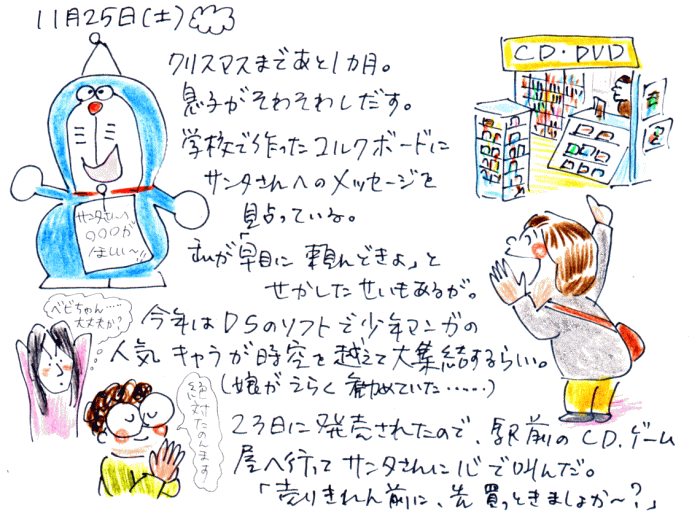 11月25日(土)
CD・DVD
クリスマスまであと1カ月。
息子がそわそわしだす。
学校で作ったコルクボードに
サンタさんへのメッセージを
貼っている。
私が「早目に頼んできよ」と
せかしたせいもあるが。
サンタさんへ
〇〇〇が
ほしい〜!!
ベビちゃん……
大丈夫か?
今年はDSのソフトで少年マンガの
人気キャラが時空を越えて大集結するらしい。
(娘がえらく勧めていた……)
絶対たのんます
23日に発売されたので、駅前のCD、ゲーム
屋へ行って サンタさんに心で叫んだ。
「売りきれん前に、先 買っときましょか〜?」